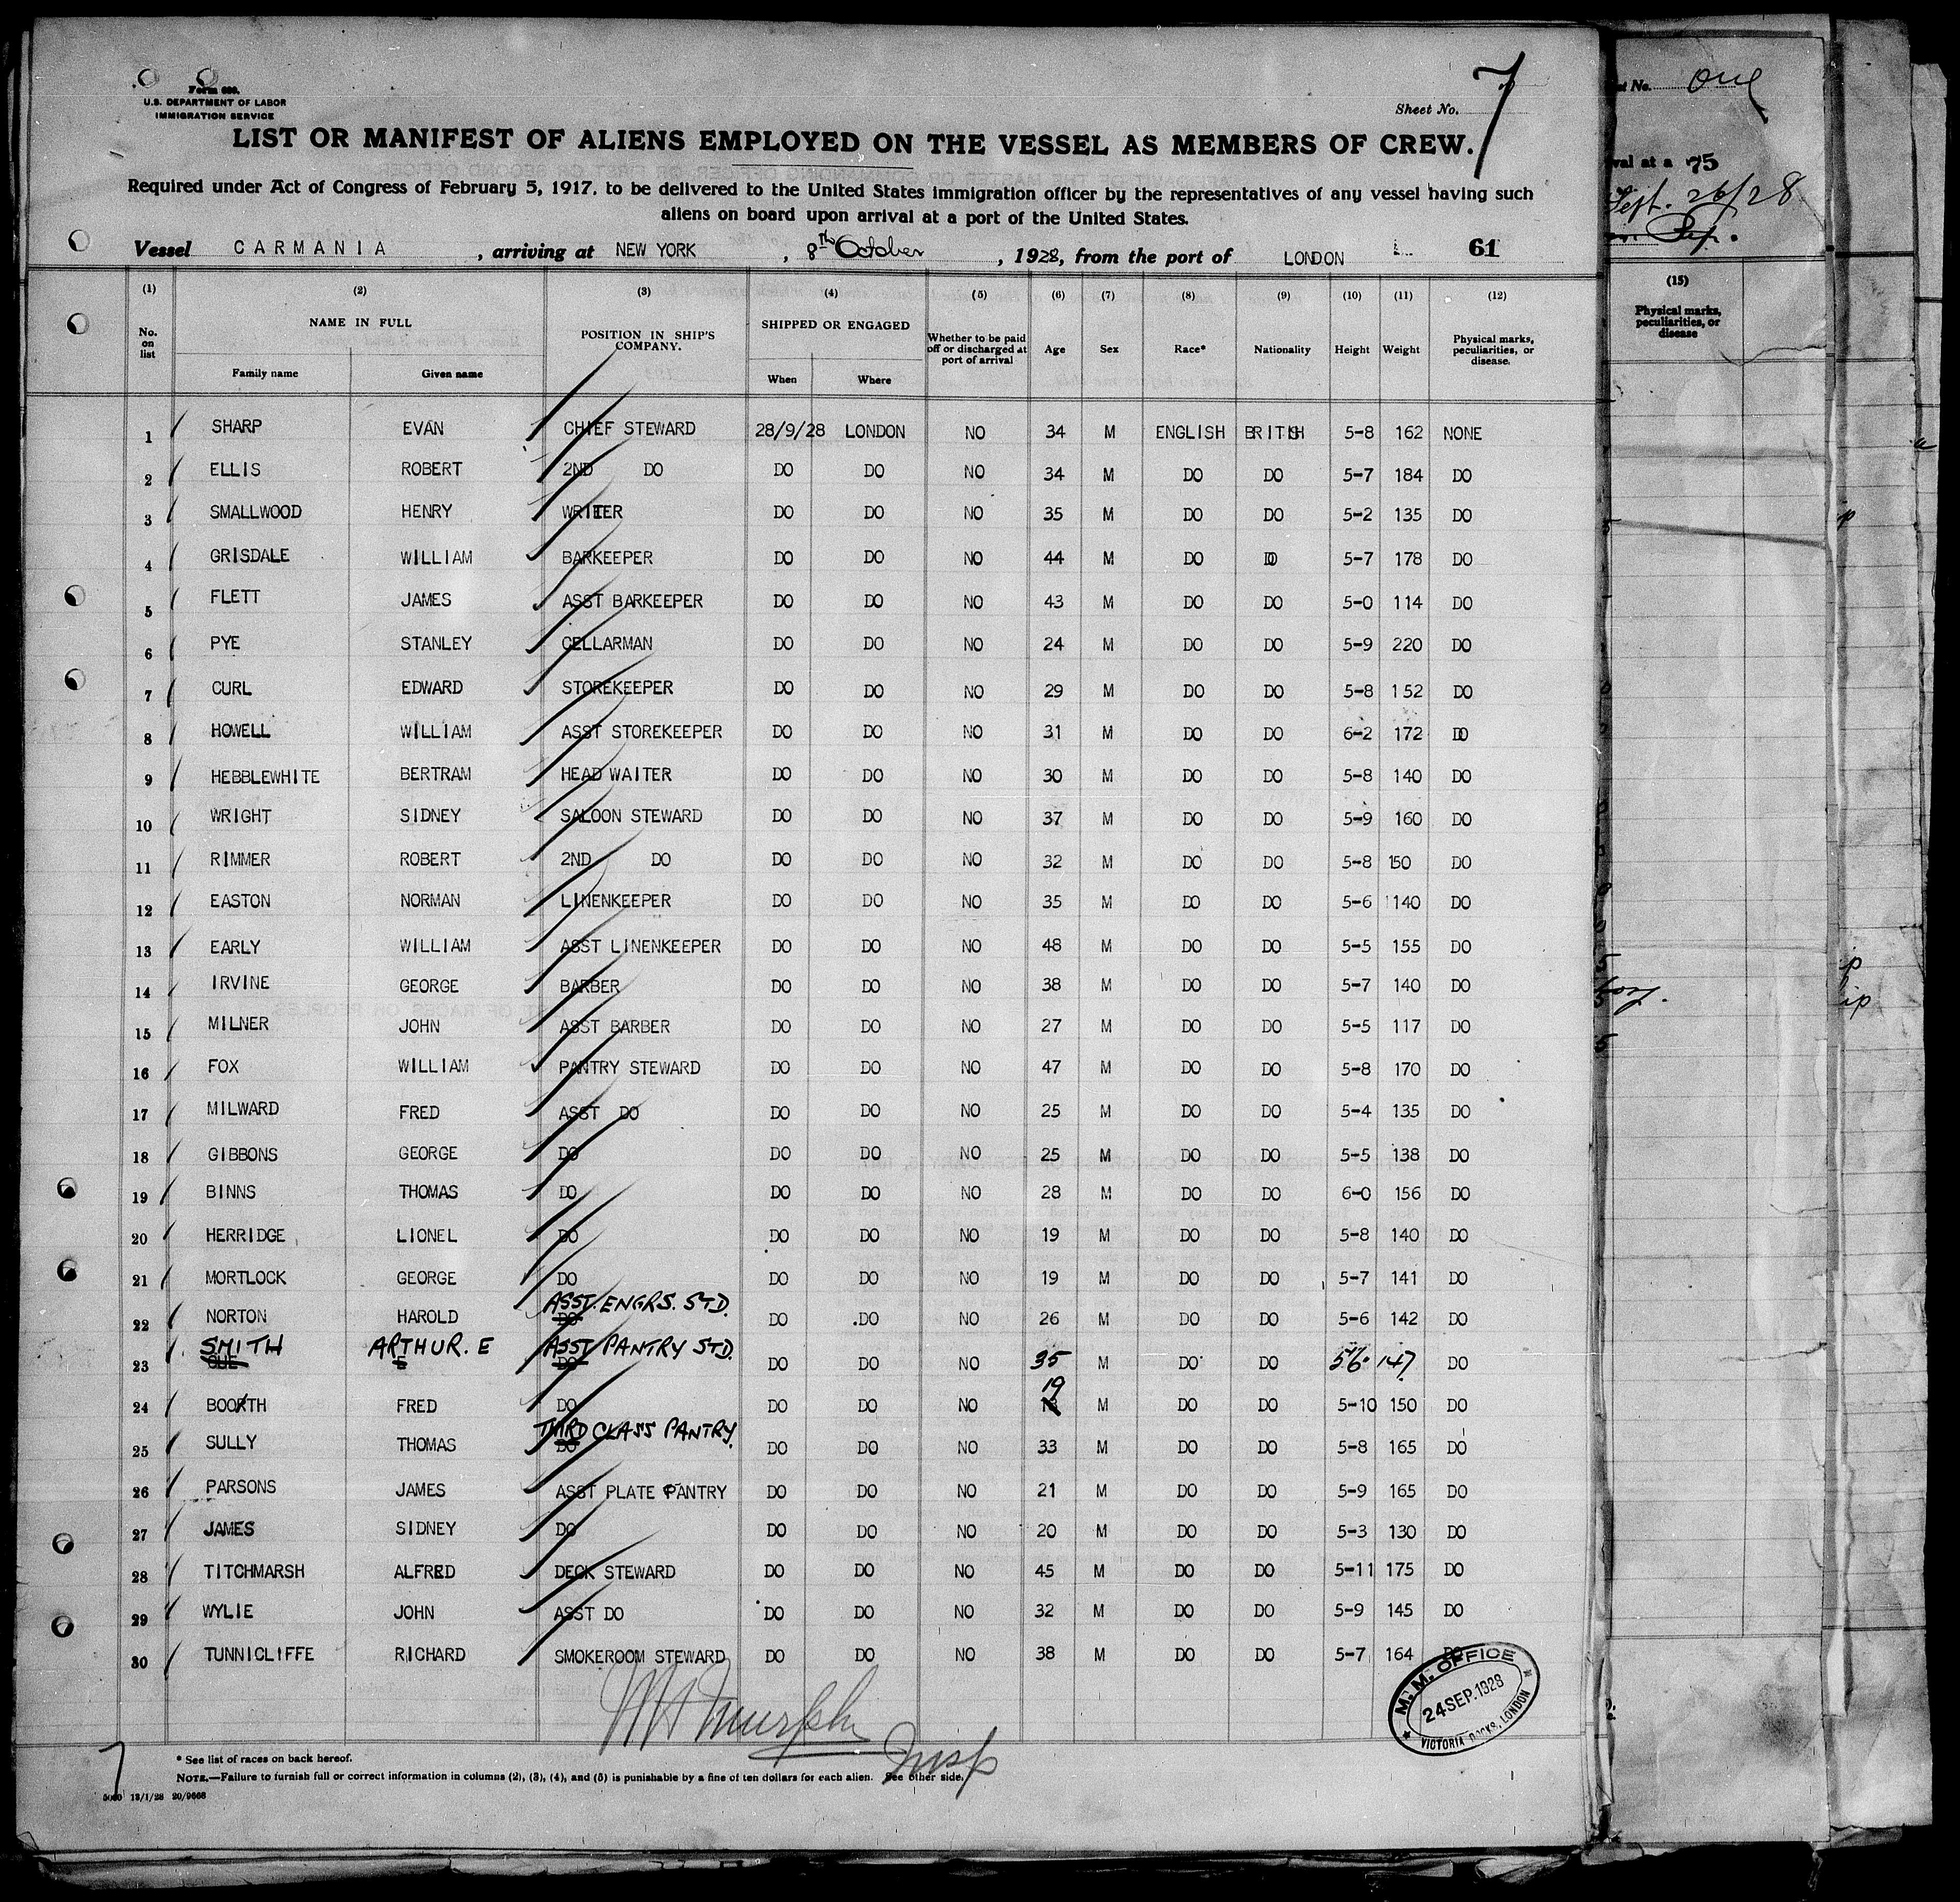 Form 680.
U.S. DEPARTMENT OF LABOR
IMMIGRATION SERVICE
Sheet No. 7
LIST OR MANIFEST OF ALIENS EMPLOYED ON THE VESSEL AS MEMBERS OF CREW.
Required under Act of Congress of February 5, 1917, to be delivered to the United States immigration officer by the representatives of any vessel having such
aliens on board upon arrival at a port of the United States.
Vessel CARMANIA, arriving at NEW YORK, 8th October, 1928, from the port of LONDON 61
(1) (2) (3) (4) (5) (6) (7) (8) (9) (10) (11) (12)
No. on list NAME IN FULL Family name Given name POSITION IN SHIP'S COMPANY. SHIPPED OR ENGAGED When Where Whether to be paid off or discharged at port of arrival Age Sex Race* Nationality Height Weight Physical marks, peculiarities, or disease.
1 SHARP EVAN CHIEF STEWARD 28/9/28 LONDON NO 34 M ENGLISH BRITISH 5-8 162 NONE
2 ELLIS ROBERT 2ND DO DO DO NO 34 M DO DO 5-7 184 DO
3 SMALLWOOD HENRY WRITER DO DO NO 35 M DO DO 5-2 135 DO
4 GRISDALE WILLIAM BARKEEPER DO DO NO 44 M DO DO 5-7 178 DO
5 FLETT JAMES ASST BARKEEPER DO DO NO 43 M DO DO 5-0 114 DO
6 PYE STANLEY CELLARMAN DO DO NO 24 M DO DO 5-9 220 DO
7 CURL EDWARD STOREKEEPER DO DO NO 29 M DO DO 5-8 152 DO
8 HOWELL WILLIAM ASST STOREKEEPER DO DO NO 31 M DO DO 6-2 172 DO
9 HEBBLEWHITE BERTRAM HEAD WAITER DO DO NO 30 M DO DO 5-8 140 DO
10 WRIGHT SIDNEY SALOON STEWARD DO DO NO 37 M DO DO 5-9 160 DO
11 RIMMER ROBERT 2ND DO DO DO NO 32 M DO DO 5-8 150 DO
12 EASTON NORMAN LINENKEEPER DO DO NO 35 M DO DO 5-6 140 DO
13 EARLY WILLIAM ASST LINENKEEPER DO DO NO 48 M DO DO 5-5 155 DO
14 IRVINE GEORGE BARBER DO DO NO 38 M DO DO 5-7 140 DO
15 MILNER JOHN ASST BARBER DO DO NO 27 M DO DO 5-5 117 DO
16 FOX WILLIAM PANTRY STEWARD DO DO NO 47 M DO DO 5-8 170 DO
17 MILWARD FRED ASST DO DO DO NO 25 M DO DO 5-4 135 DO
18 GIBBONS GEORGE DO DO DO NO 25 M DO DO 5-5 138 DO
19 BINNS THOMAS DO DO DO NO 28 M DO DO 6-0 156 DO
20 HERRIDGE LIONEL DO DO DO NO 19 M DO DO 5-8 140 DO
21 MORTLOCK GEORGE DO DO DO NO 19 M DO DO 5-7 141 DO
22 NORTON HAROLD ASST. ENGRS. STD. DO DO NO 26 M DO DO 5-6 142 DO
23 SMITH ARTHUR. E ASST PANTRY STD. DO DO NO 35 M DO DO 5'6" 147 DO
24 BOOTH FRED DO DO DO NO 19 M DO DO 5-10 150 DO
25 SULLY THOMAS THIRD CLASS PANTRY. DO DO NO 33 M DO DO 5-8 165 DO
26 PARSONS JAMES ASST PLATE PANTRY DO DO NO 21 M DO DO 5-9 165 DO
27 JAMES SIDNEY DO DO DO NO 20 M DO DO 5-3 130 DO
28 TITCHMARSH ALFRED DECK STEWARD DO DO NO 45 M DO DO 5-11 175 DO
29 WYLIE JOHN ASST DO DO DO NO 32 M DO DO 5-9 145 DO
30 TUNNICLIFFE RICHARD SMOKEROOM STEWARD DO DO NO 38 M DO DO 5-7 164 DO
M. M. OFFICE
24 SEP. 1928
VICTORIA DOCKS, LONDON
Murphy
Insp
* See list of races on back hereof.
NOTE.—Failure to furnish full or correct information in columns (2), (3), (4), and (5) is punishable by a fine of ten dollars for each alien. See other side.
7
5000 13/1/28 20/9668
No. one
val at a 75
Sept. 26/28
(15)
Physical marks, peculiarities, or disease